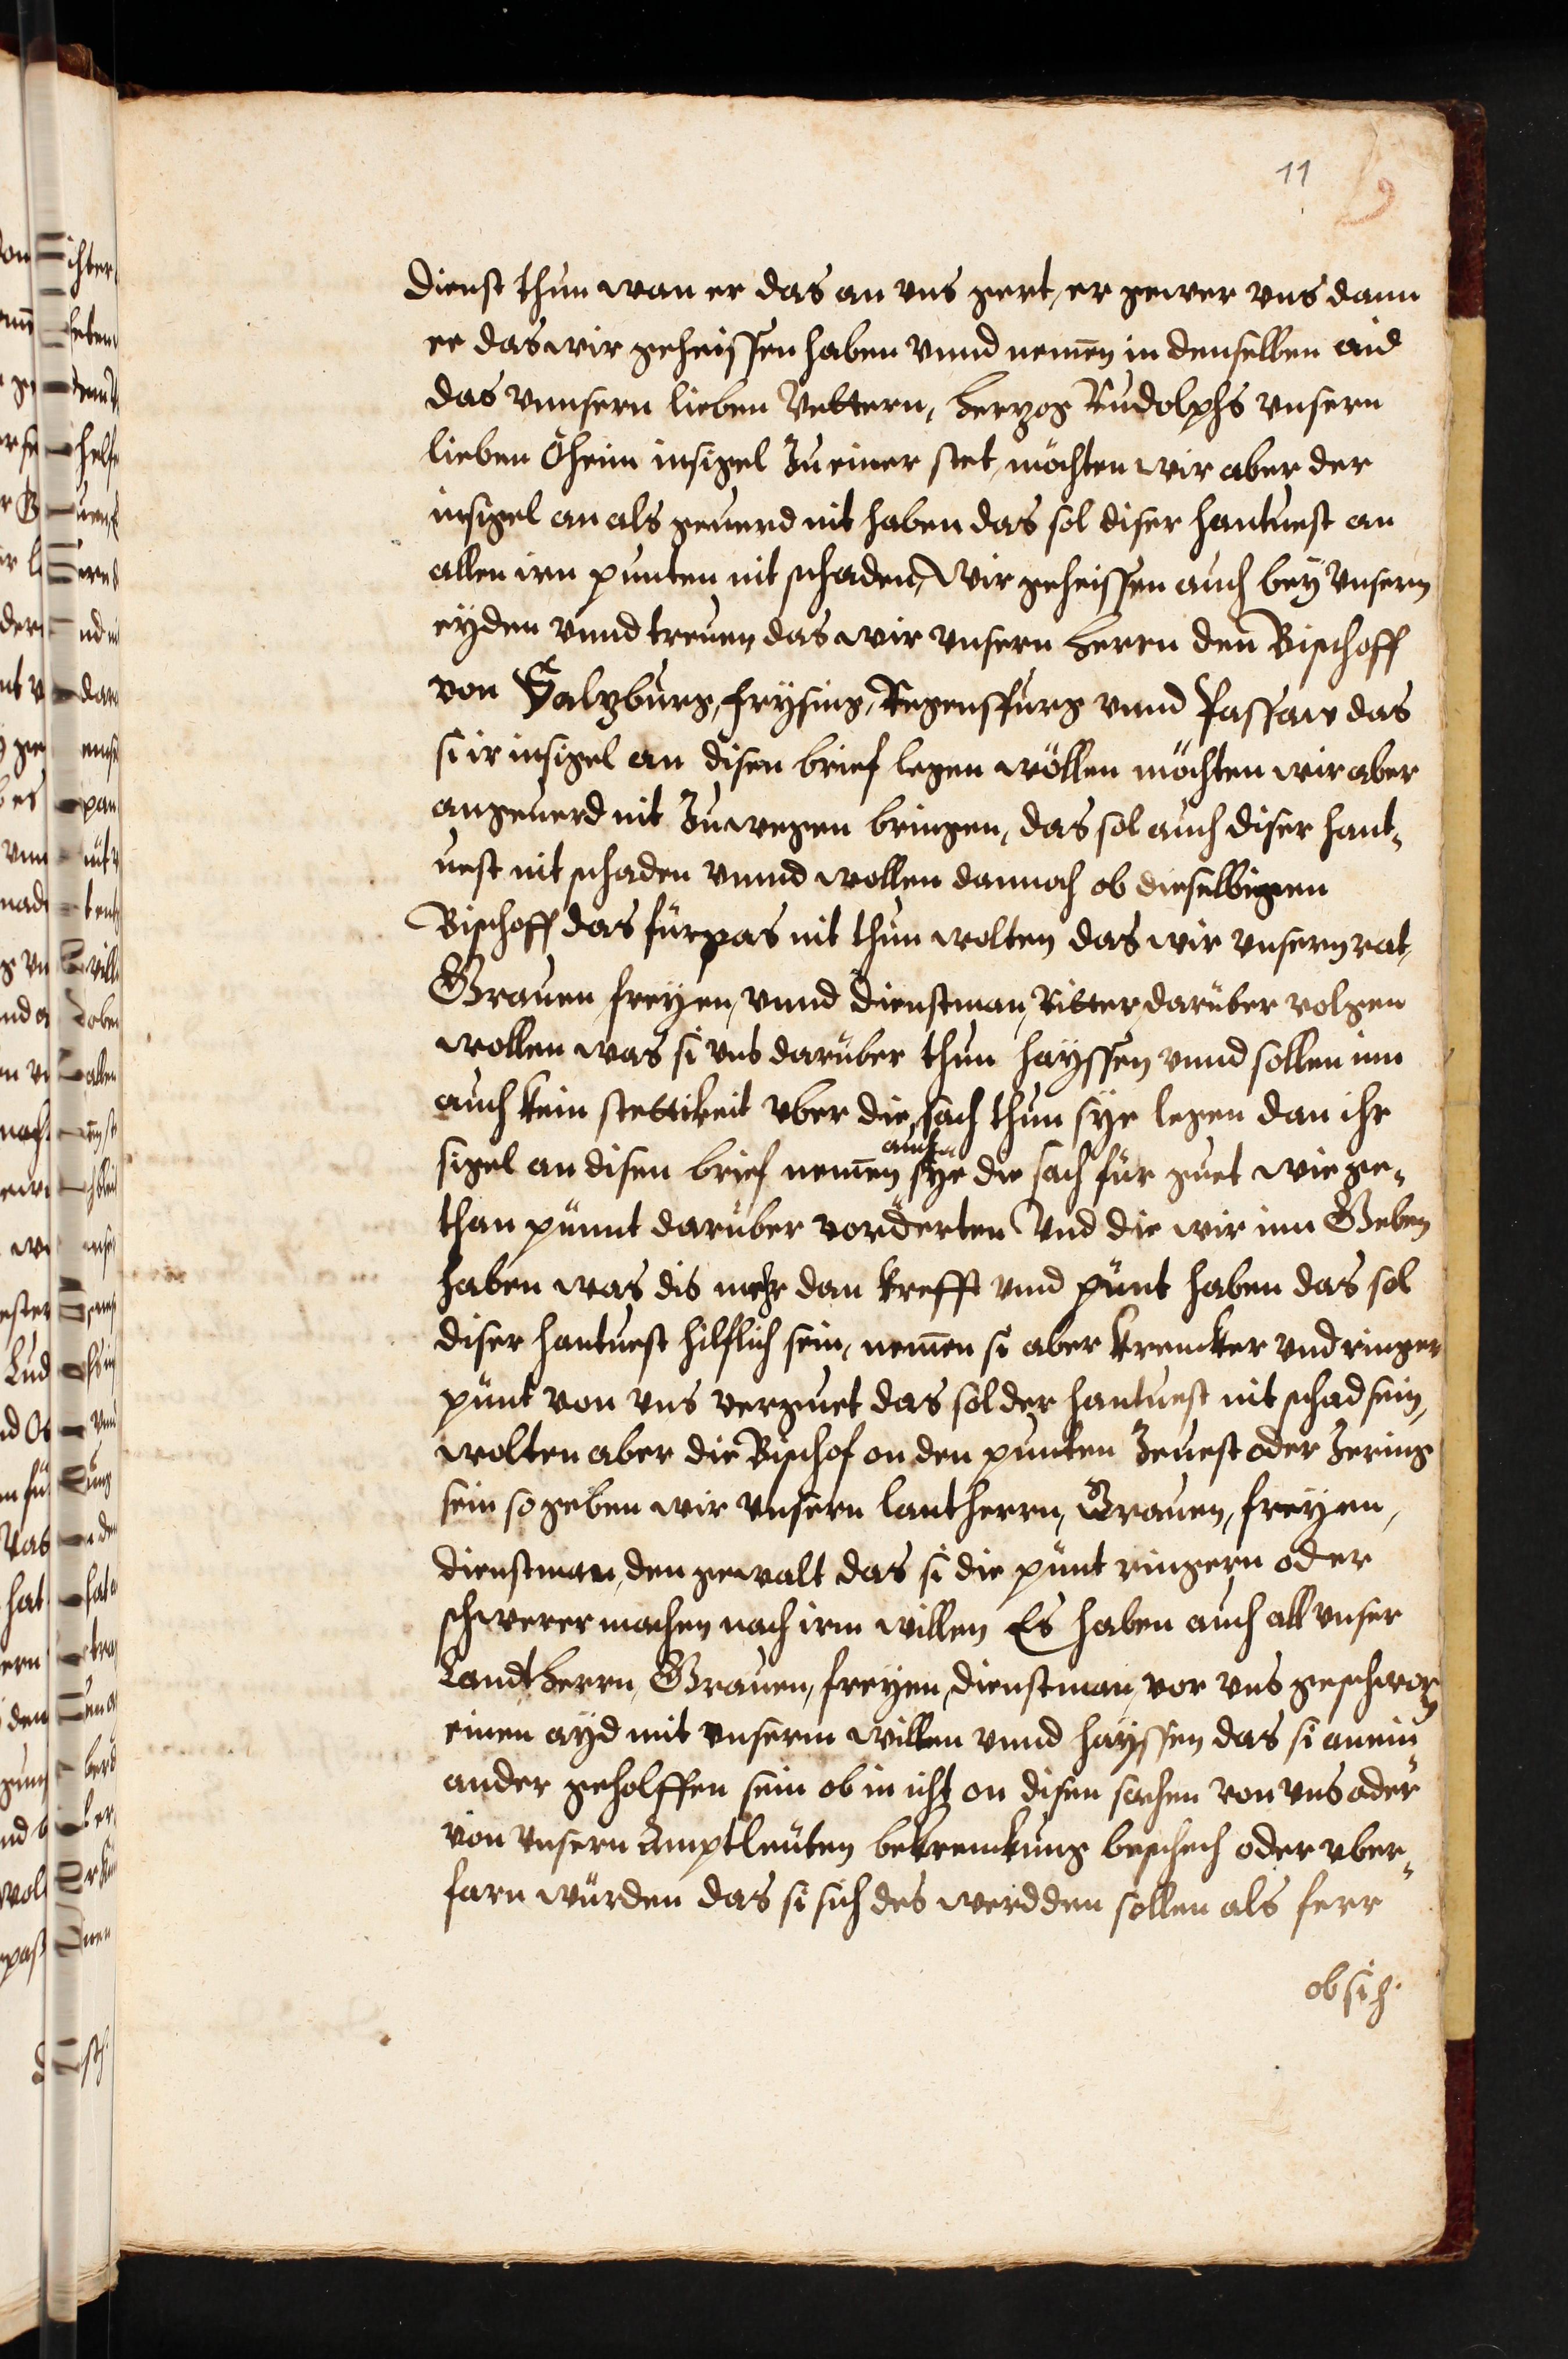 11
dienst thun wan er das an vns gert, er gewer vns dann
ee das wir geheissen haben vnnd nemen in denselben aid
das vnnsern lieben Vettern, herzog Rudolphs vnsern
lieben Öheim insigel Zu einer stet, möchten wir aber der
insigel an als geuerd nit haben das sol diser hantuest an
allen irn punten nit schaden, Wir geheissen auch bey vnsern
eyden vnnd treuen das wir vnsern herrn den Bischoff
von Saltzburg, freysing, Regenspurg vnnd Passaw das
si ir insigel an disen brief legen wöllen möchten wir aber
angeuerd nit Zuwegen bringen, das sol auch diser hant-
uest nit schaden vnnd wollen dannoch ob dieselbigen
Bischoff das fürpas nit thun wolten das wir vnsern rat,
Grauen freyen, vnnd dienstman, Ritter, darüber volgen
wollen was si vns darüber thun hayssen vnnd sollen inn
auch kein stettikeit vber die sach thun sye legen dan ihr
sigel an disen brief nemen auch sye die sach für guet wie ge-
than pünnt darüber vorderten Vnd die wir inn Geben
haben was dis mehr dan krefft vnnd pünt haben das sol
diser hantuest hilflich sein, nemen si aber krencker vnd ringer
pünt von vns verguet das sol der hantuest nit schad sein,
wolten aber die Bischof on den punten Zeuest oder Zering
sein so geben wir vnsern lantherrn, Grauen, freyen,
dienstman, den gewalt das si die pünt ringern oder
schwerer machen nach irm willen Es haben auch all vnser
Landtherrn, Grauen, freyen, dienstman, vor vns geschworn
einen ayd mit vnserm willen vnnd hayssen das si anein
ander geholffen sein ob in icht on disen sachen von vns oder
von vnsern Amptleüten bekrenckung beschech oder vber-
farn würden das si sich des werdden sollen als ferr
ob sich.